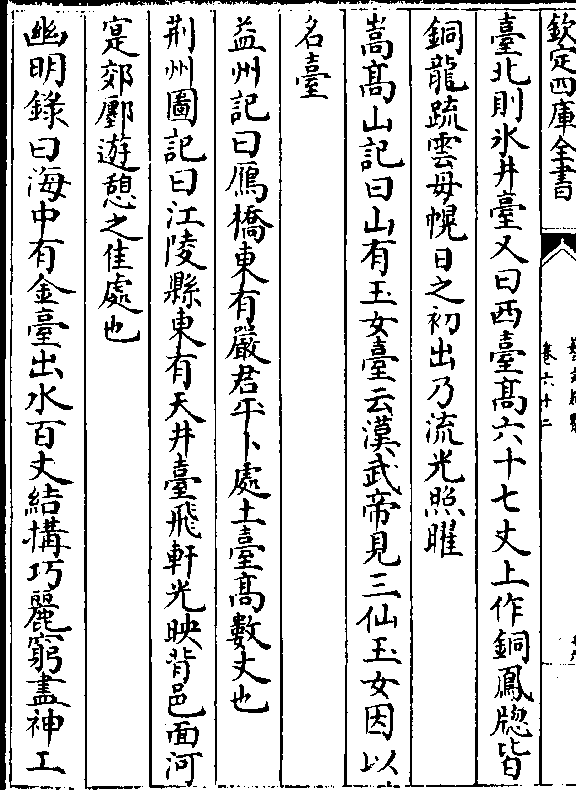 欽定四庫全書
卷六十二
臺北則氷井臺又曰西臺髙六十七丈上作銅鳳牕皆
銅龍䟽雲母幌日之初出乃流光照曜
嵩髙山記曰山有玉女臺云漢武帝見三仙玉女因以
名臺
益州記曰鴈橋東有嚴君平卜處土臺髙數丈也
荆州圖記曰江陵縣東有天井臺飛軒光映背邑面河
寔郊鄽遊憩之佳處也
幽明錄曰海中有金臺出水百丈結搆巧麗窮盡神工